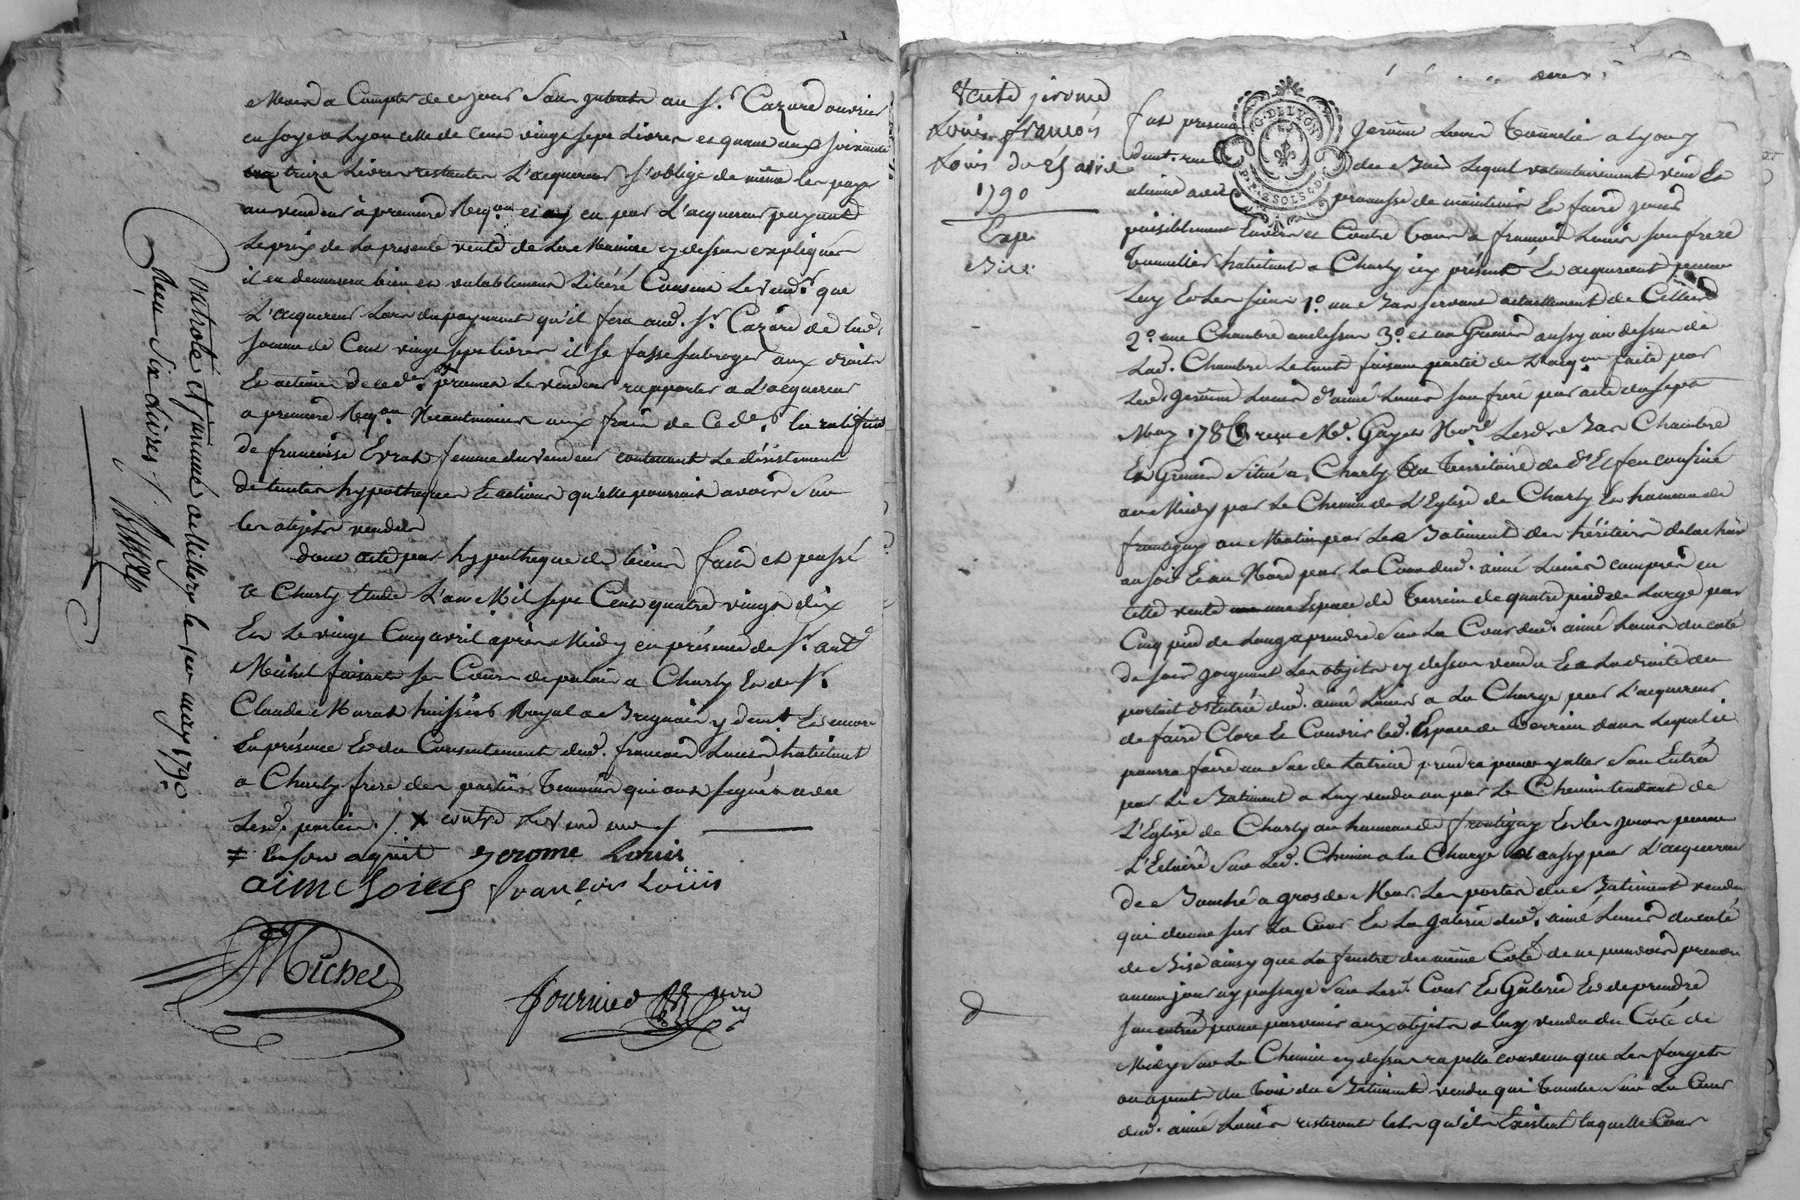 mois a Compter de ce jour sans interets au Sr. Cazard ouvrier
en soye a Lyon celle de Cent vingt sept Livres et quant aux soixante
treize Livres restantes L'acquereur s'oblige de même les payer
au vendeur à premiere Reqon et en par L'acquereur payant
Le prix de La presente vente de La Maniere cy dessus expliquée
il en demeurera bien et valablement Libéré Consent Le Vendr. que
L'acquereur Lors du payement qu'il fera aud. Sr. Cazard de lad.
somme de Cent vingt sept livres il se fasse subroger aux droits
Et actions de ce dr. promet Le vendeur rapporter a L'acquereur
a premiere Reqon. Neantmoins aux frais de Ce dr. la ratifion
de françoise Evrat femme du vendeur contenant Le désistement
de toutes hypotheques Et actions qu'elle pourroit avoir Sur
les objets vendus
dont acte par hypotheque de biens fait et passé
a Charly Etude L'an Mil sept Cent quatre vingt dix
Et Le vingt Cinq avril après Midy en présence de Sr. ant
Michel faisant ses Cours de palais a Charly Et de Sr.
Claude Marat huissier Royal a Brignais y demt. Et encore
En présence Et du Consentement dud. françois Louis habitant
a Charly frere des parties Temoins qui ont signés avec
Lesd. parties /. x contre Le vendeur /
# Et son aquit jerome Louis
aimé Loius françois Loüis
Michel
fournier
Controlé et jnsinué a millery le jer may 1790
Reçu Six Livres /.
Vente jerome
Louis françois
Louis du 25 avril
1790
Expe
G. DE LYON
P. P. DE SOLS 6 D.
fut present Jerôme Louis Tonnelier a Lyon y
demt. rue du Bois Lequel volontairement vend Et
aliene avec promesse de maintenir Et faire jouir
paisiblement Envers et Contre tous a françois Louis son frere
Tonnelier habitant a Charly icy présent Et acquereur pour
Luy Et Les siens 1o. une Bas servant actuellement de Cellier
2o. une Chambre au dessus 3o. et un Grenier aussy au dessus de
Lad. Chambre Le tout faisant partie de L'acqon faite par
Led. Jerôme Louis d'aimé Louis son frere par acte du sept
May 178 reçu Me. Gayet Nore. Lesdts Bas Chambre
Et Grenier Situé a Charly Territoire de Confiné
au Midy par Le Chemin de L'Eglise de Charly Et hameau de
frontigny au Matin par Le Batiment des héritiers
au soir Et au Nord par La Cour dud. aimé Louis compris en
cette vente une Espace de Terrein de quatre pieds de Large par
Cinq pied de Long a prendre Sur La Cour dud. aimé Louis du coté
du soir joignant Les objets cy dessus vendu Et a La droite du
portail d'Entrée dud. aimé Louis a La Charge par L'acquereur
de faire Clore Et Couvrir led. Espace de Terrein dans Lequel il
pourra faire un Sac de Latrine prendra pour y aller Son Entrée
par Le Batiment a Luy vendu ou par Le Chemin tendant de
L'Eglise de Charly au hameau de frontigny Et les jours pour
L'Eclairé Sur Led. Chemin a la Charge aussy par L'acquereur
de Bouché a gros de Mur Les portes du Batiment vendu
qui donne sur La Cour Et La galerie dud. aimé Louis du coté
de Bise ainsy que La fenetre du même Coté de ne pouvoir prendre
aucun jour ny passage Sur Lesd. Cour Et Galerie Et de prendre
son entrée pour parvenir aux objets a luy vendu du Coté de
Midy Sur Le Chemin cy dessus rapellé convenu que Les forgets
ou apents du Toit du Batiment vendu qui tombe Sur La Cour
dud. aimé Louis resteront tels qu'ils Existent laquelle Cour